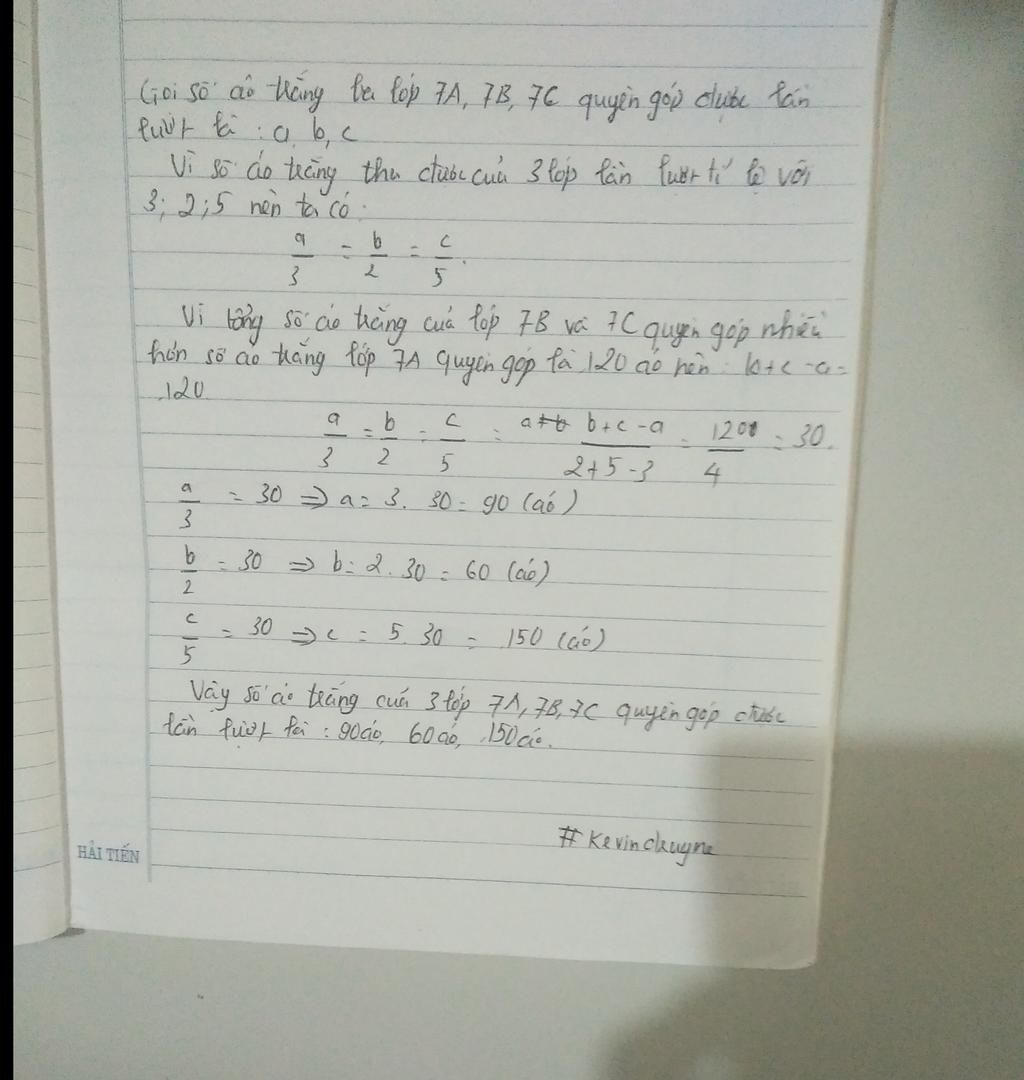 Gọi số áo trắng ba lớp 7A, 7B, 7C quyên góp được lần
lượt là : a, b, c
Vì số áo trắng thu được của 3 lớp lần lượt tỉ lệ với
3; 2; 5 nên ta có :
a/3 = b/2 = c/5.
Vì tổng số áo trắng của lớp 7B và 7C quyên góp nhiều
hơn số áo trắng lớp 7A quyên góp là 120 áo nên : b+c-a=
120
a/3 = b/2 = c/5 = b+c-a/2+5-3 = 120/4 = 30.
a/3 = 30 => a = 3. 30 = 90 (áo)
b/2 = 30 => b = 2. 30 = 60 (áo)
c/5 = 30 => c = 5. 30 = 150 (áo)
Vậy số áo trắng của 3 lớp 7A, 7B, 7C quyên góp được
lần lượt là : 90 áo, 60 áo, 150 áo.
HẢI TIẾN